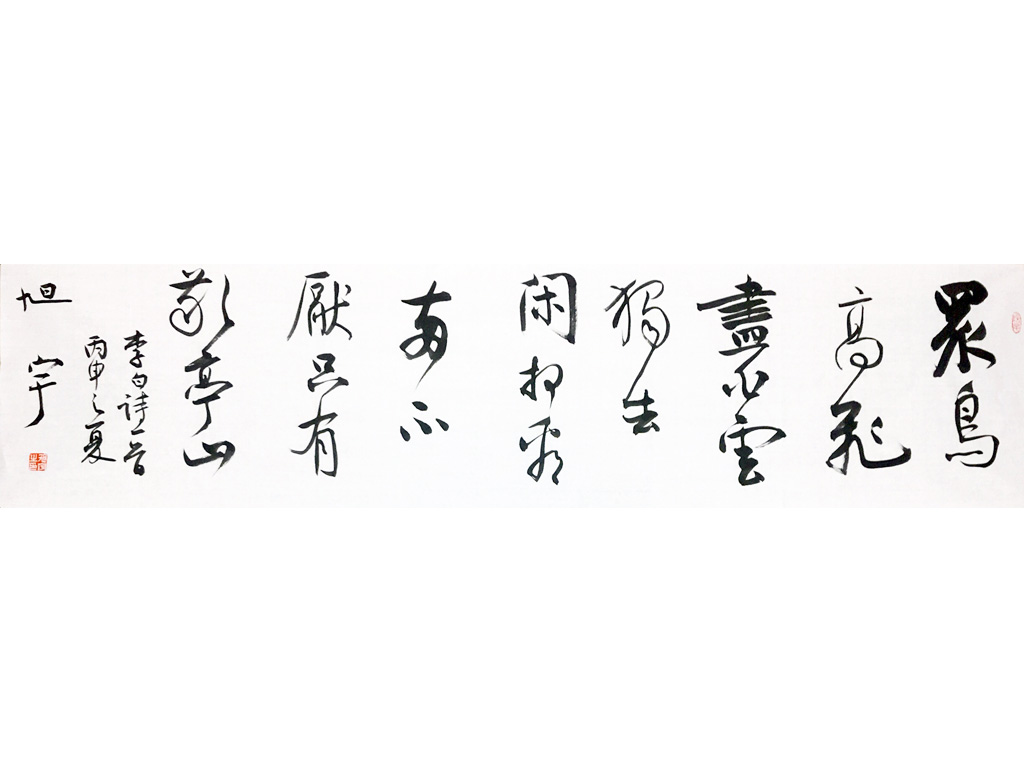 眾鳥
高飛
盡孤雲
獨去
閑相看
兩不
厭只有
敬亭山
李白詩一首
丙申之夏
旭宇